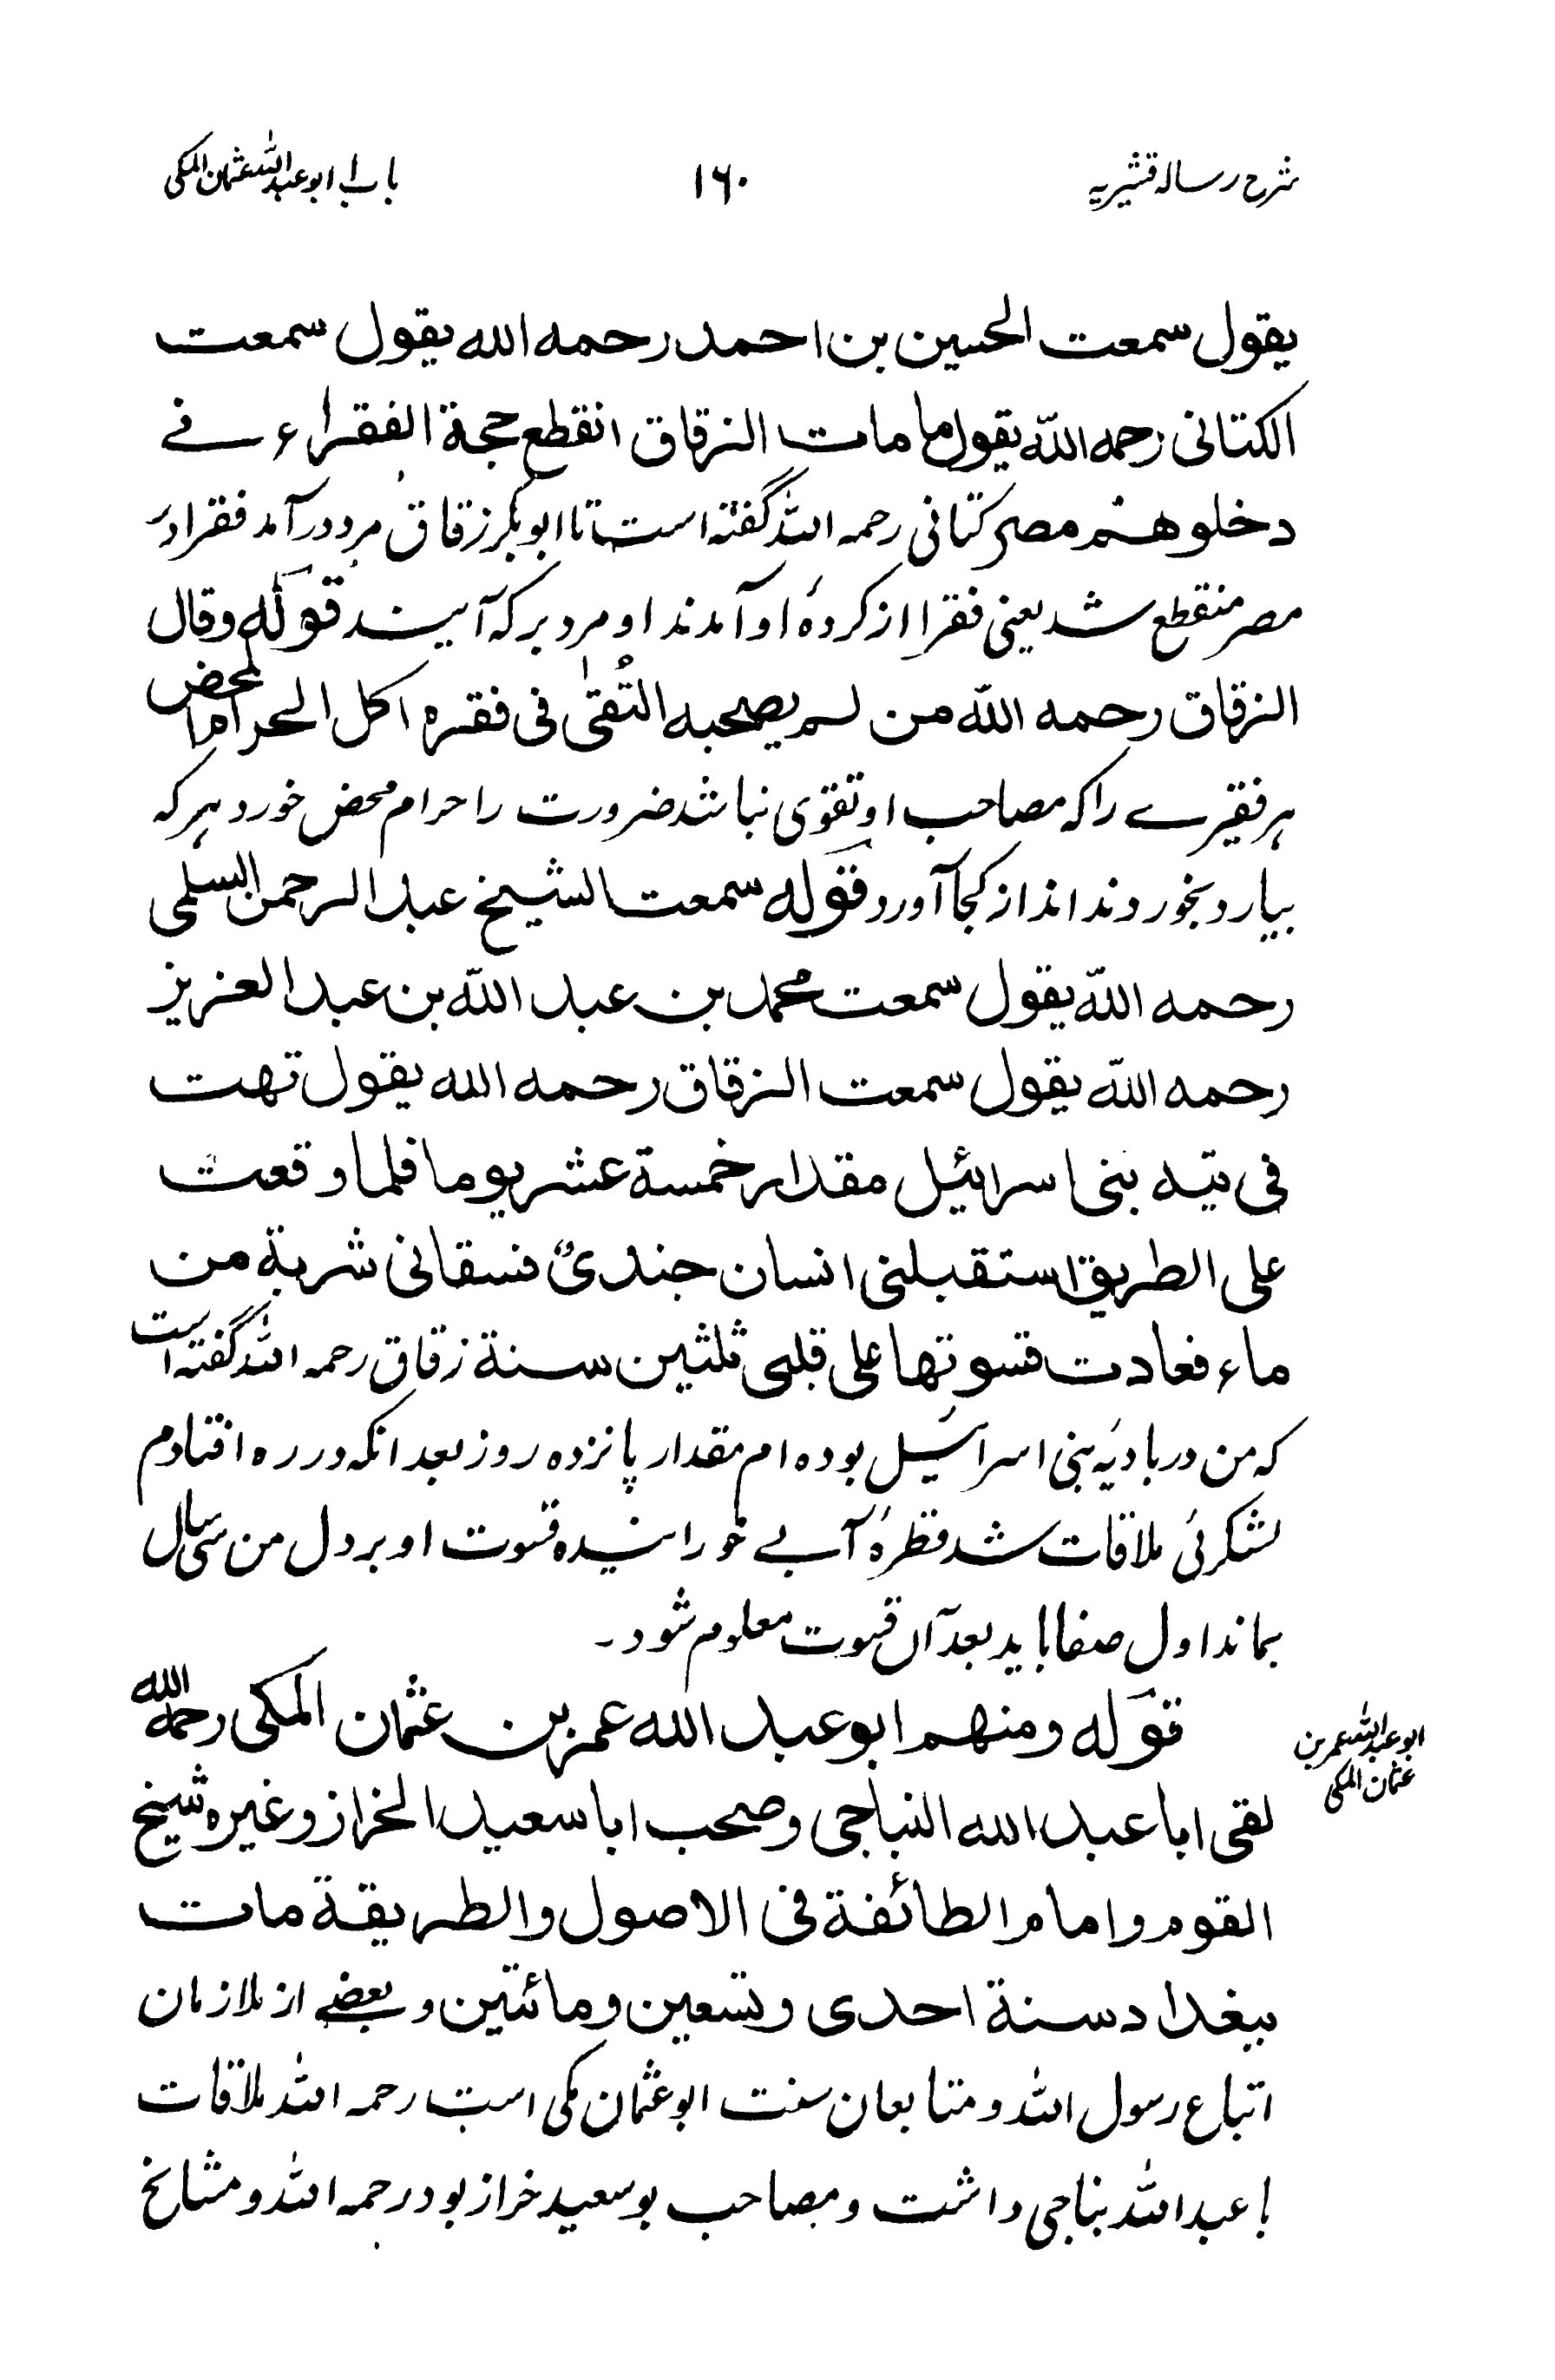 شرح رساله قشیریه
۱۶۰
باب ابو عبد الله عثمان المکی
یقول سمعت الحسین بن احمد رحمه الله یقول سمعت
الکتانی رحمه الله یقول لما مات الزقاق انقطع حجة الفقراء فی
دخلوهم مصر کتانی رحمه الله گفته است تا ابوبکر زقاق مرد درآمد فقرا در
مصر منقطع شد یعنی فقرا از کردهٔ او آمدند او مرد برکه آیند قوله وقال
الزقاق رحمه الله من لم یصحبه التُقیٰ فی فقره اکل الحرام المحض
هر فقیرے را که مصاحب او تقوی نباشد ضرورت را حرام محض خورد هر که
بیارد بخورد نداند از کجا آورد قوله سمعت الشیخ عبد الرحمن السلمی
رحمه الله یقول سمعت محمد بن عبد الله بن عبد العزیز
رحمه الله یقول سمعت الزقاق رحمه الله یقول تهت
فی تیه بنی اسرائیل مقدار خمسة عشر یوما فلما وقعت
علی الطریق استقبلنی انسان جندیٌ فسقانی شربة من
ماء فعادت قسوتها علی قلبی ثلثین سنة زقاق رحمه الله گفته است
که من در بادیهٔ بنی اسرائیل بوده ام مقدار پانزده روز بعد انکه در ره افتادم
لشکرئی ملاقات شد قطرهٔ آبے خورانیده قسوت او بر دل من سی سال
بماند اول صفا باید بعد آن قسوت معلوم شود۔
قوله ومنهم ابو عبد الله عمر بن عثمان المکی رحمه الله
ابو عبد الله عمر بن
عثمان المکی
لقی ابا عبد الله النباجی وصحب ابا سعید الخراز وغیره شیخ
القوم وامام الطائفة فی الاصول والطریقة مات
ببغداد سنة احدی وتسعین ومائتین و بعضے از ملازمان
اتباع رسول الله و متابعان سنت ابو عثمان مکی است رحمه الله ملاقات
با عبد الله بناجی داشت و مصاحب بو سعید خراز بود رحمه الله و مشایخ